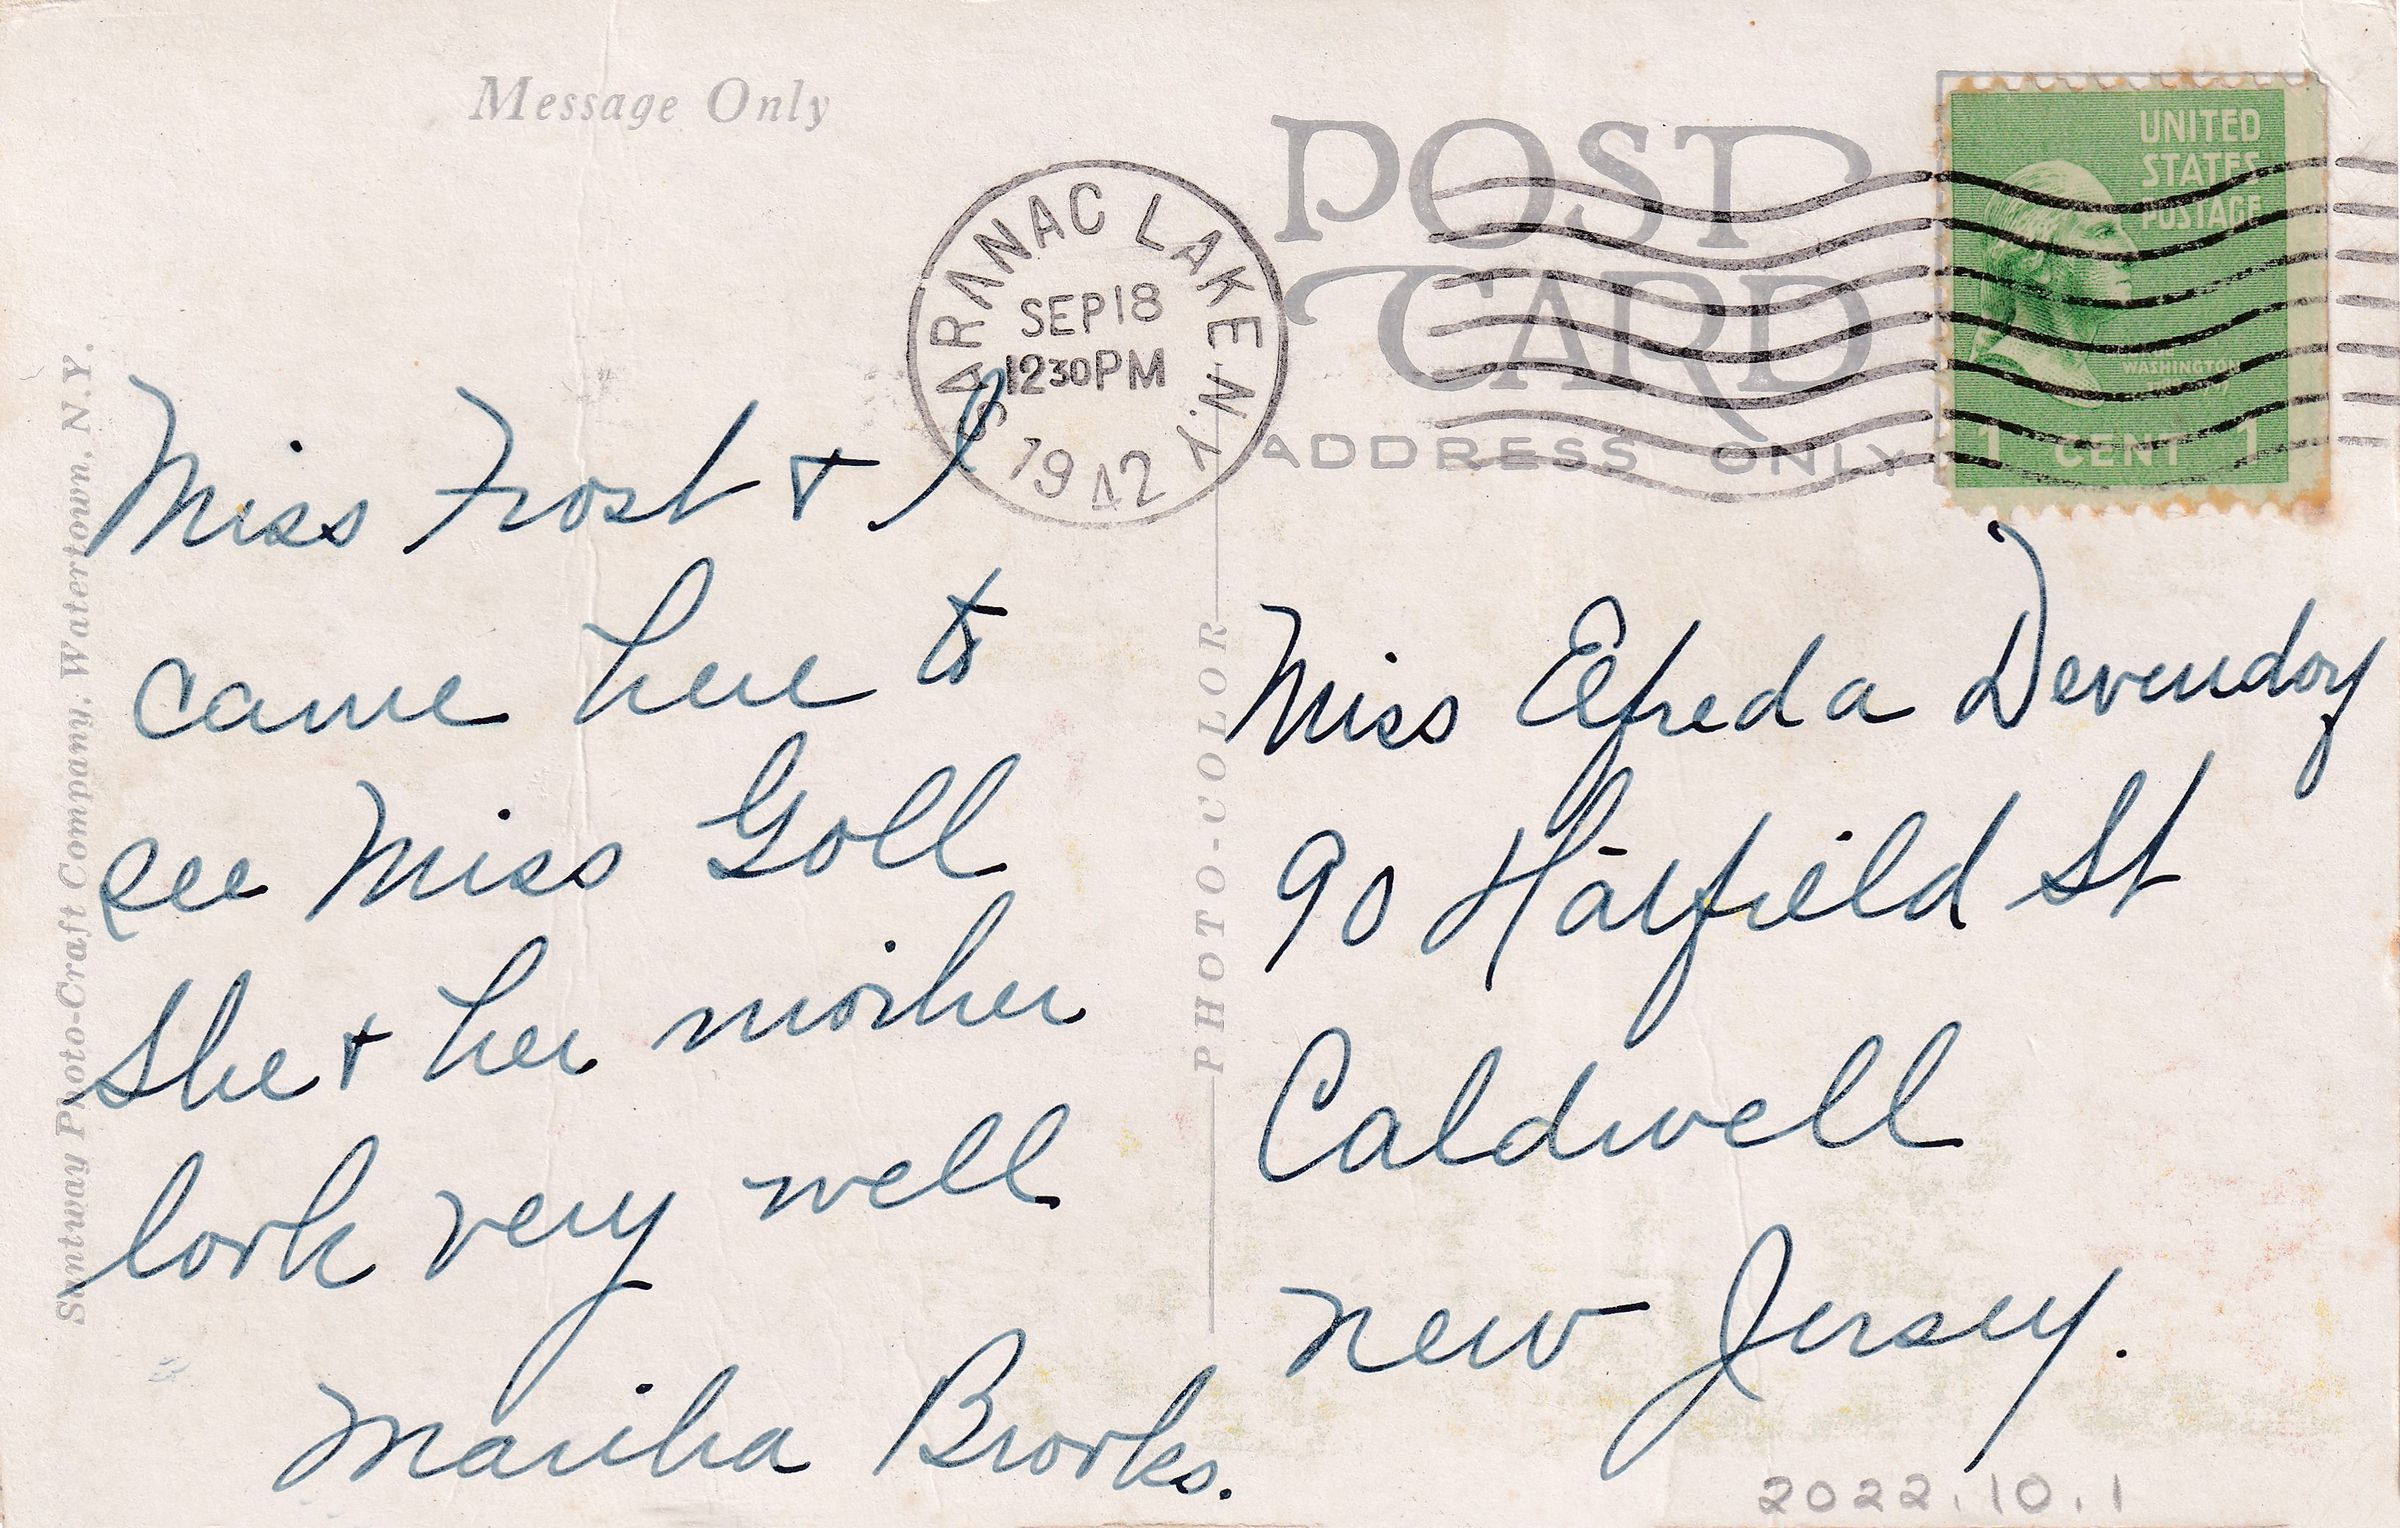 Message Only
POST
CARD
ADDRESS ONLY
SARANAC LAKE N.Y.
SEP 18
12 30 PM
1942
UNITED
STATES
POSTAGE
WASHINGTON
1 CENT 1
Miss Frost + I
came here to
see Miss Goll
She + her mother
look very well
Martha Brooks.
Miss Elfreda Devendorf
90 Hatfield St
Caldwell
New Jersey.
PHOTO-COLOR
Santway Photo-Craft Company, Watertown, N.Y.
2022.10.1